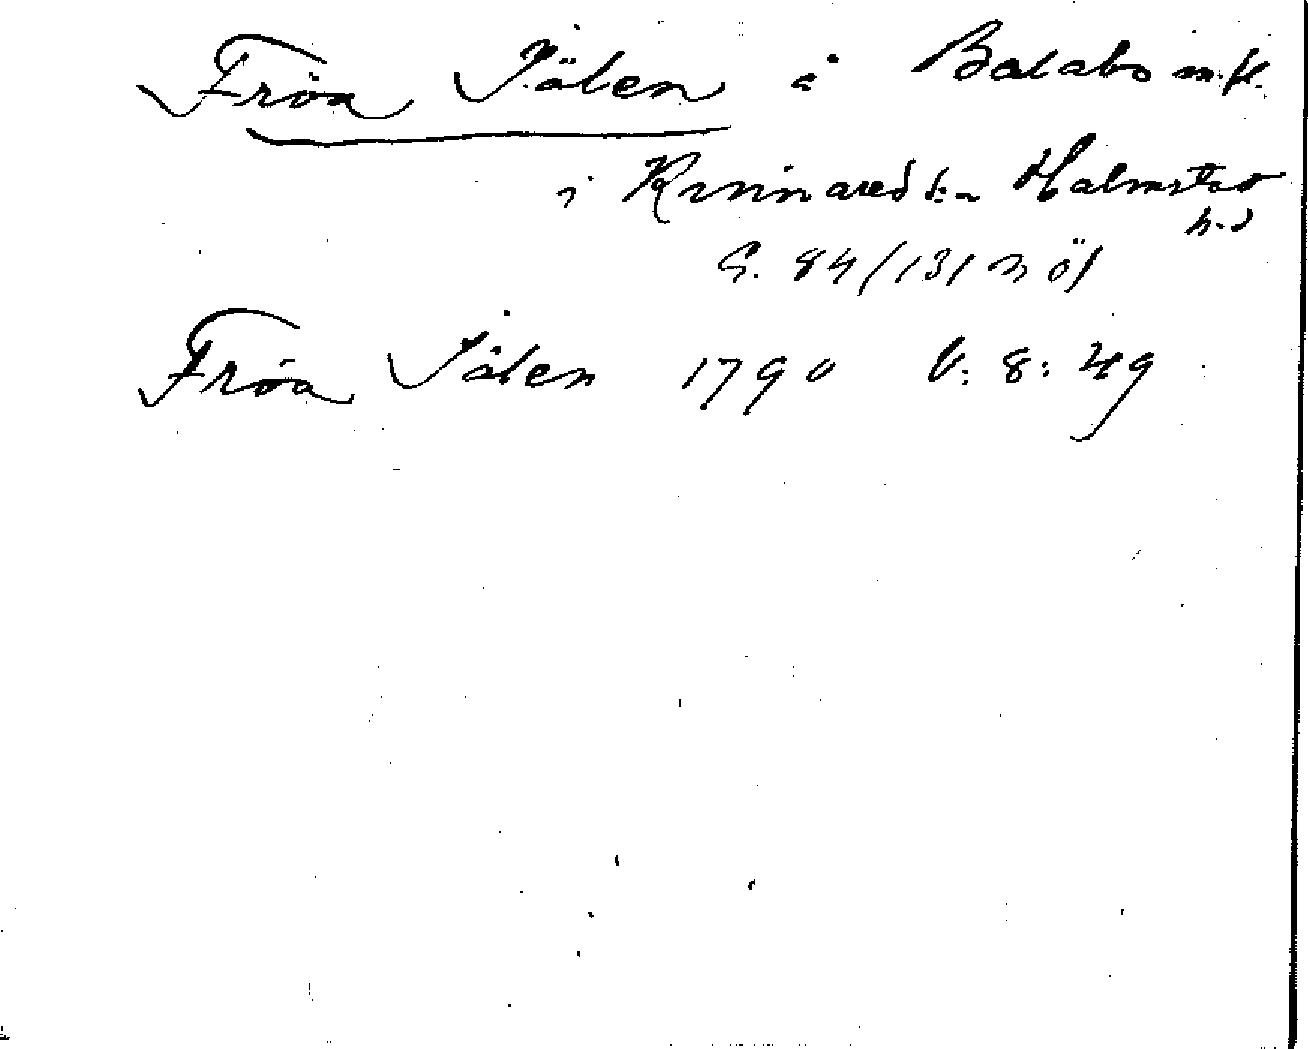 Fröa Jälen å Balabo m.fl.
i Kinnared s:n Halmstad
h.d
G. 84/131 N Öl
Fröa Jälen 1790 V: 8: 49